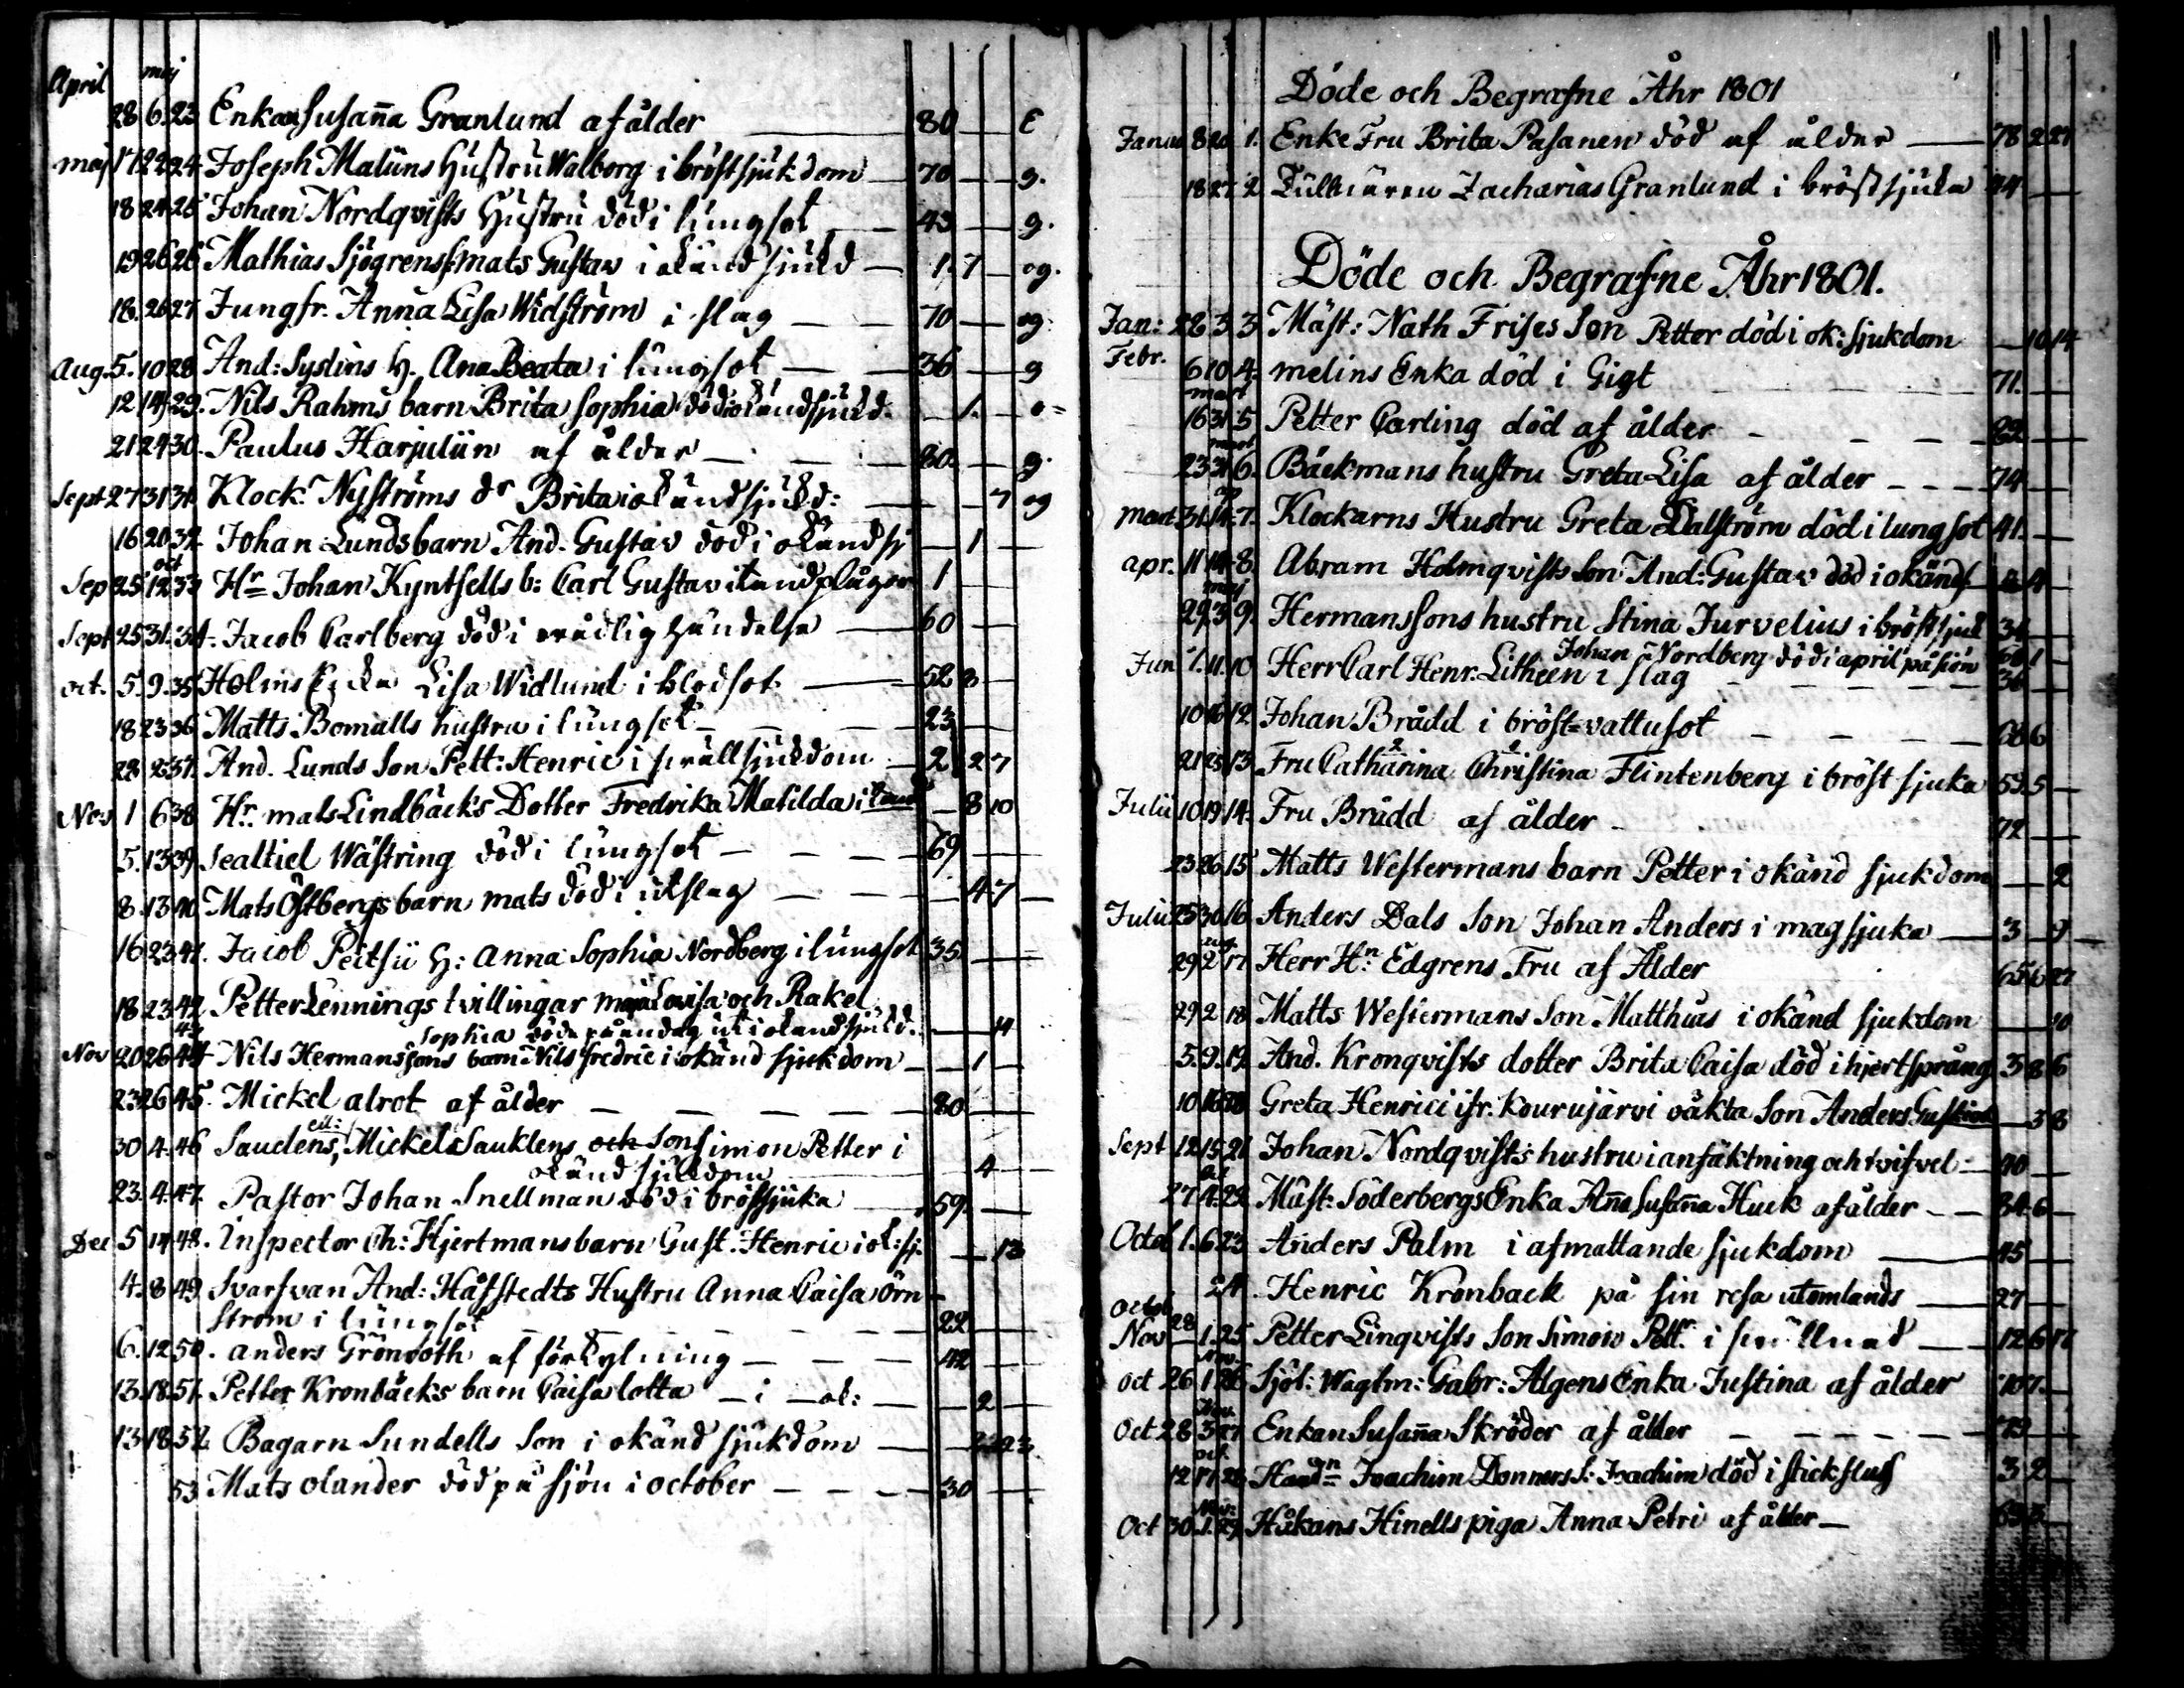 April maj
28 6. 23 Enkan Susanna Granlund af ålder 80 E
maj 17 22 24 Joseph Malüns Hustru Walborg i bröstsjukdom 70 g.
18 24 25 Johan Nordqvists Hustru död i lungsot 43 g.
19 26 26 Mathias Sjögrens s. mats Gustav i okänd sjukd 1. 7 og.
18. 26 27 Jungfr. Anna Lisa Widström i slag 70 og.
Aug. 5. 10 28 And: Syslins H. Ana Beata i lungsot 36 g
12 14 29. Nils Rahms barn Brita Sophia död i okänd sjukd. 1. o=
21 24 30. Paulus Harjulin af ålder 80. g.
Sept 27 31 31 Klock. Nyströms dr Brita i okänd sjukd: 7 og
16 20 32. Johan Lunds barn And. Gustav död i okänd sj 1
oct
Sep 25 12 33 Hr Johan Kyntsells b: Carl Gustav i tandplågor 1
Sept 25 31. 34. Jacob Carlberg död i vådlig händelse 60
oct. 5. 9. 35 Holms Enka Lisa Widlund i blodsot 52 3
18 23 36 Matts Bomalls hustru i lungsot 23
28 2 37. And. Lunds Son Pett: Henric i svullsjukdom 2 2 7
Nov 1 6 38 Hr. mats Lindbäcks Dotter Fredrika Matilda i 8 10
5. 13 39 Sealtiel Wästring död i lungsot 69
8. 13 40 Mats Östbergs barn mats död i utslag 4 7
16 23 41. Jacob Peitsii H: Anna Sophia Nordberg i lungsot 35.
18 23 42 Petter Lennings tvillingar maja Lovisa och Rakel
43 Sophia döde i okänd sjukd. 14
Nov 20 26 44 Nils Hermanssons barn Nils fredric i okänd sjukdom 1
23 26 45. Mickel alrot af ålder 80
30 4. 46 Saudens, Mickel Sauklens och Son Simon Petter i
okänd sjukdom 4
23. 4. 47. Pastor Johan Snellman död i bröstsjuka 59.
Dec 5 14 48. Inspector Ch: Hjertmans barn Gust. Henric i ok: sj. 13
4. 8 49. Svarfvan And: Håfstedts Hustru Anna Caisa Örn-
ström i lungsot 22
6. 12 50. anders Grönroth af förkylning 42
13. 18. 51. Petter Kronbäcks barn Caisa lotta i ok: 2
13 18. 52 Bagarn Sundells Son i okänd sjukdom 2 23
53 Mats olander död på sjön i october 30
Döde och Begrafne Åhr 1801
Janu 8 20 1. Enke Fru Brita Pasanen död af ålder 78 2 27
18 27. 2 Tullnären Zacharias Granlund i bröstsjuka 44
Döde och Begrafne Åhr 1801.
Jan: 28 3 3 Mäst: Nath Frises Son Petter död i ok: sjukdom 10 14
Febr. 6 10 4. melins Enka död i Gigt 71.
mart
16 31 5 Petter Carling död af ålder 82
mart
23 31 6. Bäckmans hustru Greta Lisa af ålder 74
mart 31. 14. 7. Klockarns Hustru Greta Dalström död i lungsot 41.
apr. 11 14 8. Abram Holmqvists Son And: Gustav död i okänd 4
maj
29. 3 9. Hermanssons hustru Stina Jurvelius i bröstsjuk 34
Johan Nordberg död i april på sjön 1
Jun 7. 11. 10 Herr Carl Henr. Litheen i slag 36
10 16 12 Johan Brådd i bröst=vattusot 68 6
21 25 13. Fru Catharina Christina Flintenberg i bröstsjuka 53. 5
Julii 10 19. 14. Fru Brådd af ålder 72
23 26 15 Matts Westermans barn Petter i okänd sjukdom 2
Julii 25 30 16. Anders Dals Son Johan Anders i magsjuka 3 9
aug.
29 2 17 Herr Hn Edgrens Fru af Ålder 65 6 27
29 2. 18 Matts Westermans Son Matthias i okänd sjukdom 10
5. 9. 19. And. Kronqvists dotter Brita Caisa död i hjertsprång 3 8 6
10 16 20 Greta Henrici ifr. Kourujärvi oäkta Son Anders Gustav 3 8
Sept 12 15 21 Johan Nordqvists hustru i anfäktning och tvifvel 40
27 4. 22 Mäst: Söderbergs Enka Anna Susanna Huck af ålder 84. 6
Octob 1. 6 23 Anders Palm i afmattande sjukdom 45
24. Henric Kronback på sin resa utomlands 27
Octob 28
Nov 1. 25 Petter Linqvists Son Simon Pett. i svullnad 12 6 17
Nov.
oct 26 1 26 Sjöl: Wagtm: Gabr: Algens Enka Justina af ålder 70 7.
Nov.
Oct 28 3 27 Enkan Susanna Skröder af ålder 79
oct.
12 17 28 Handn Joachim Donners S: Joachim död i stickfluss 3 2
Nov:
Oct 30. 1. 29. Håkans Hinells piga Anna Petri af ålder 63 3